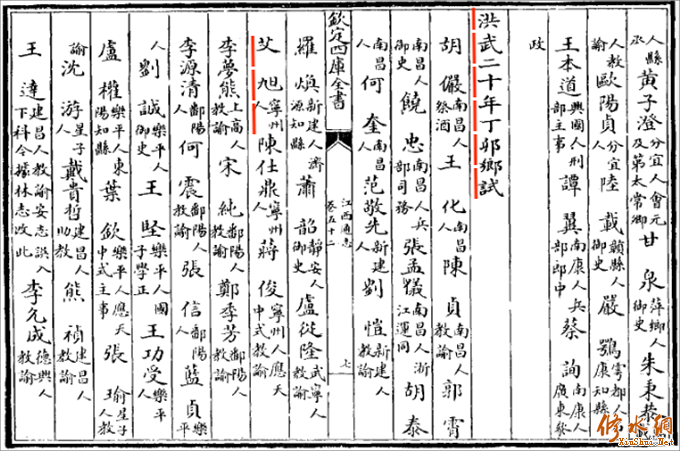 人縣丞黃子澄分宜人會元及第太常卿甘泉萍鄉人御史朱秉恭
人教諭歐陽貞分宜人陸載贛縣人御史嚴鶚雩都人康知縣
王本道興國人刑部主事譚翼南康人兵部郎中蔡詢南康人廣東參
政
洪武二十年丁卯鄉試
胡儼南昌人祭酒王化南昌人陳貞南昌人教諭郭霄
南昌人御史饒忠南昌人兵部司務張孟儀南昌人浙江運同胡泰
南昌人何奎南昌人范敬先新建人劉愷新建人教諭
欽定四庫全書
江西通志
卷五十二
七
羅煥新建人濟源知縣蕭韶靜安人御史盧從隆武寧人
艾旭寧州人陳仕鼎寧州人蔣俊寧州人應天中式教諭
李夢熊上高人教諭宋純鄱陽人教諭鄭季芳鄱陽人教諭
李源清鄱陽人何震鄱陽人教諭張信鄱陽人藍貞樂平
人劉誠樂平人御史王堅樂平人國子學正王功受樂平人
盧權樂平人東陽知縣葉欽樂平人應天中式主事張瑜星子人教
諭沈游星子人戴貴哲建昌人助教熊禎建昌人教諭
王達建昌人教諭安志誤入下科今據林志改此李允成德興人教諭
修水網
XiuShui.Net